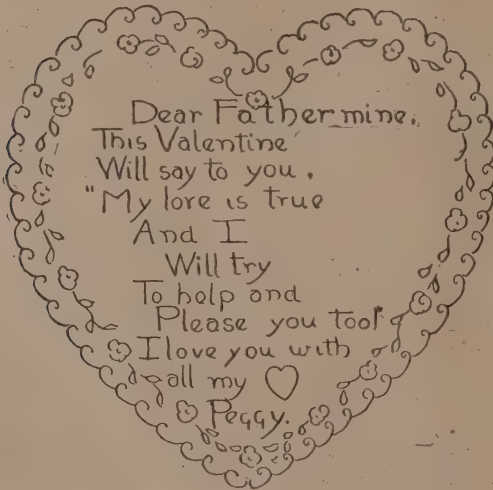 Dear Father mine.
This Valentine
Will say to you.
"My love is true
And I
Will try
To help and
Please you too!"
I love you with
all my ♡
Peggy.